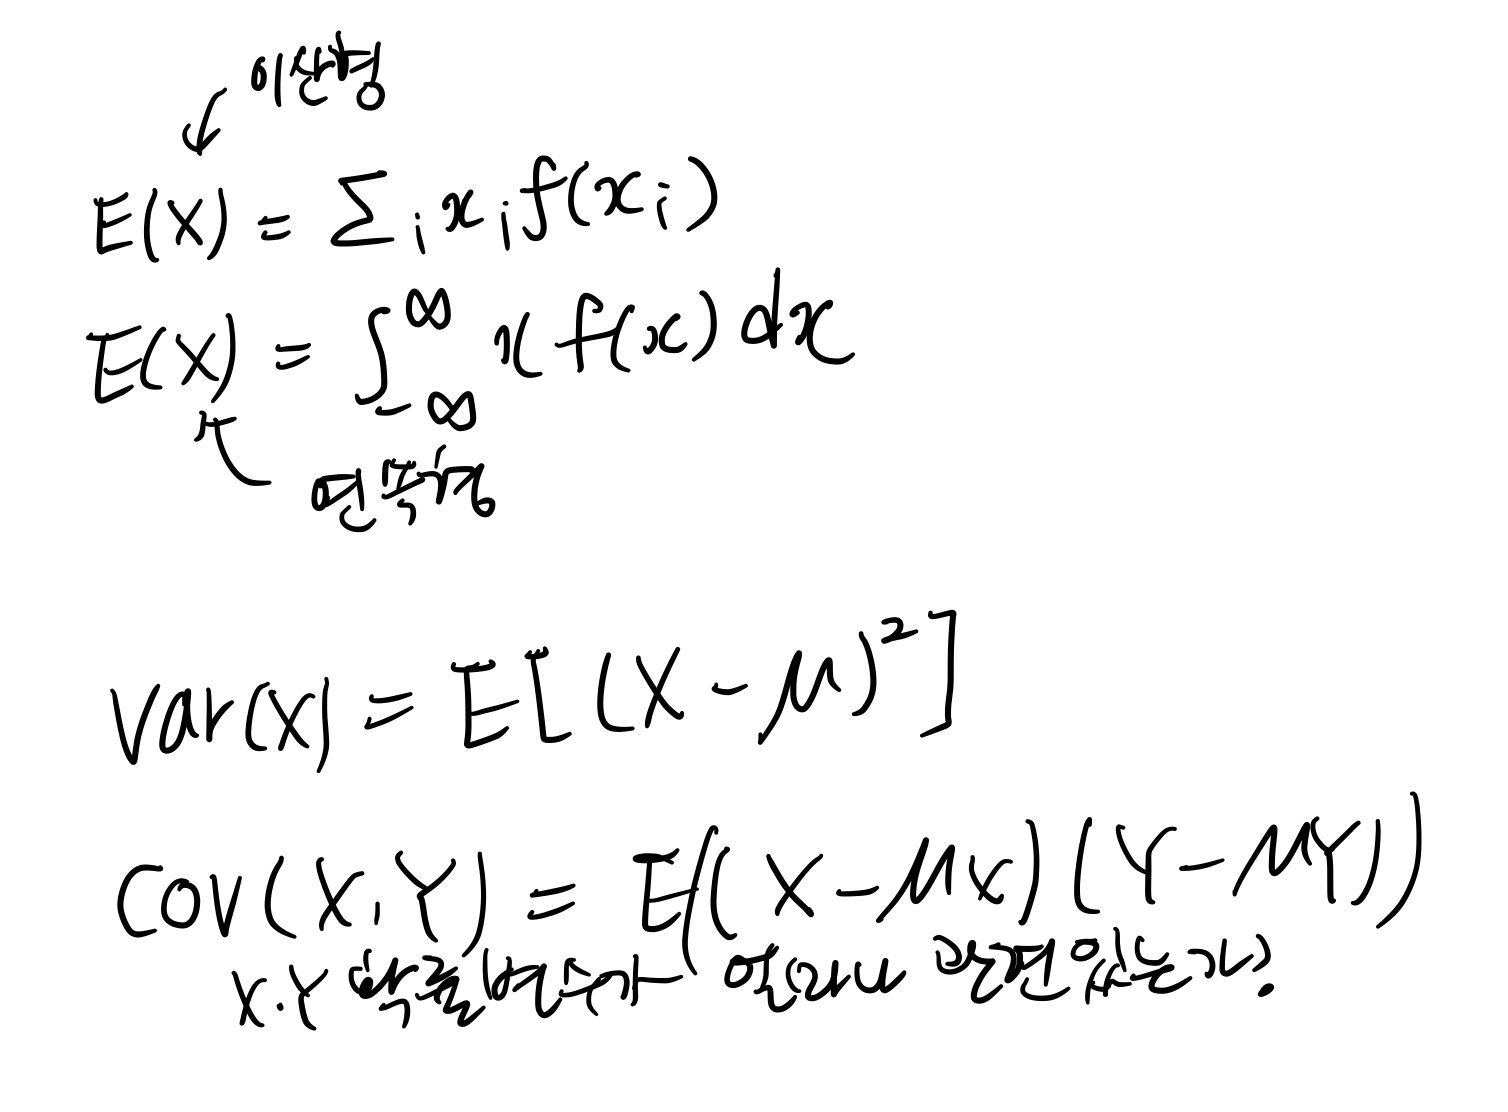 이산형
E(X) = ∑ i x i f(x i)
E(X) = ∫ ∞ -∞ x f(x) dx
연속형
Var(X) = E[(X-μ)²]
COV(X,Y) = E((X-μx)(Y-μY))
X.Y 확률변수가 얼마나 관련있는가?